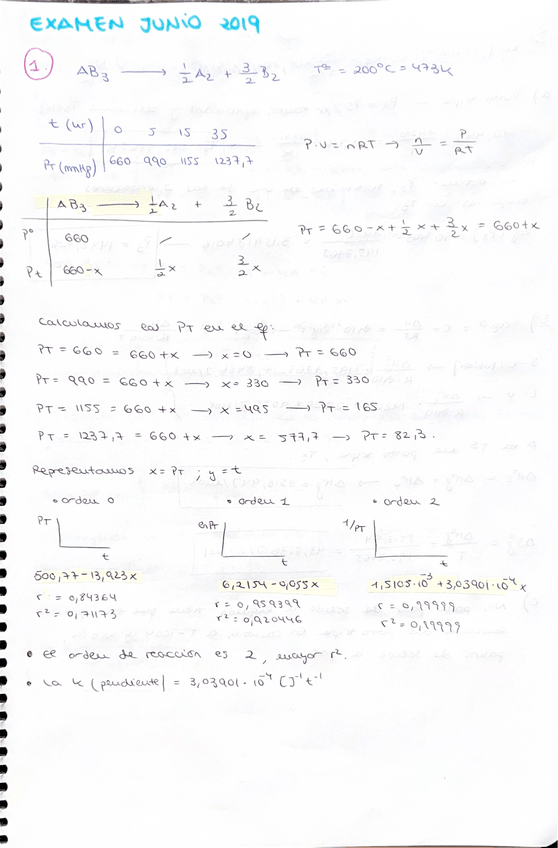 EXAMEN JUNIO 2019
1. AB3 ⟶ 1/2 A2 + 3/2 B2 Tª = 200ºC = 473K
t (ur) | 0 5 15 35
PT (mmHg) | 660 990 1155 1237,7
P·V = nRT → n/V = P/RT
AB3 ⟶ 1/2 A2 + 3/2 B2
Pº 660 / /
Pt 660-x 1/2 x 3/2 x
PT = 660 - x + 1/2 x + 3/2 x = 660 + x
Calculamos las PT en el eq:
PT = 660 = 660 + x → x = 0 → PT = 660
PT = 990 = 660 + x → x = 330 → PT = 330
PT = 1155 = 660 + x → x = 495 → PT = 165
PT = 1237,7 = 660 + x → x = 577,7 → PT = 82,3.
Representamos x = PT ; y = t
• orden 0 • orden 1 • orden 2
PT t lnPT t 1/PT t
500,77 - 13,923x 6,2154 - 0,055x 1,5105·10^-3 + 3,03901·10^-4 x
r = 0,84364 r = 0,959399 r = 0,99999
r² = 0,71173 r² = 0,920446 r² = 0,99999
• el orden de reacción es 2, mayor r².
• La k (pendiente) = 3,03901·10^-4 []^-1 t^-1